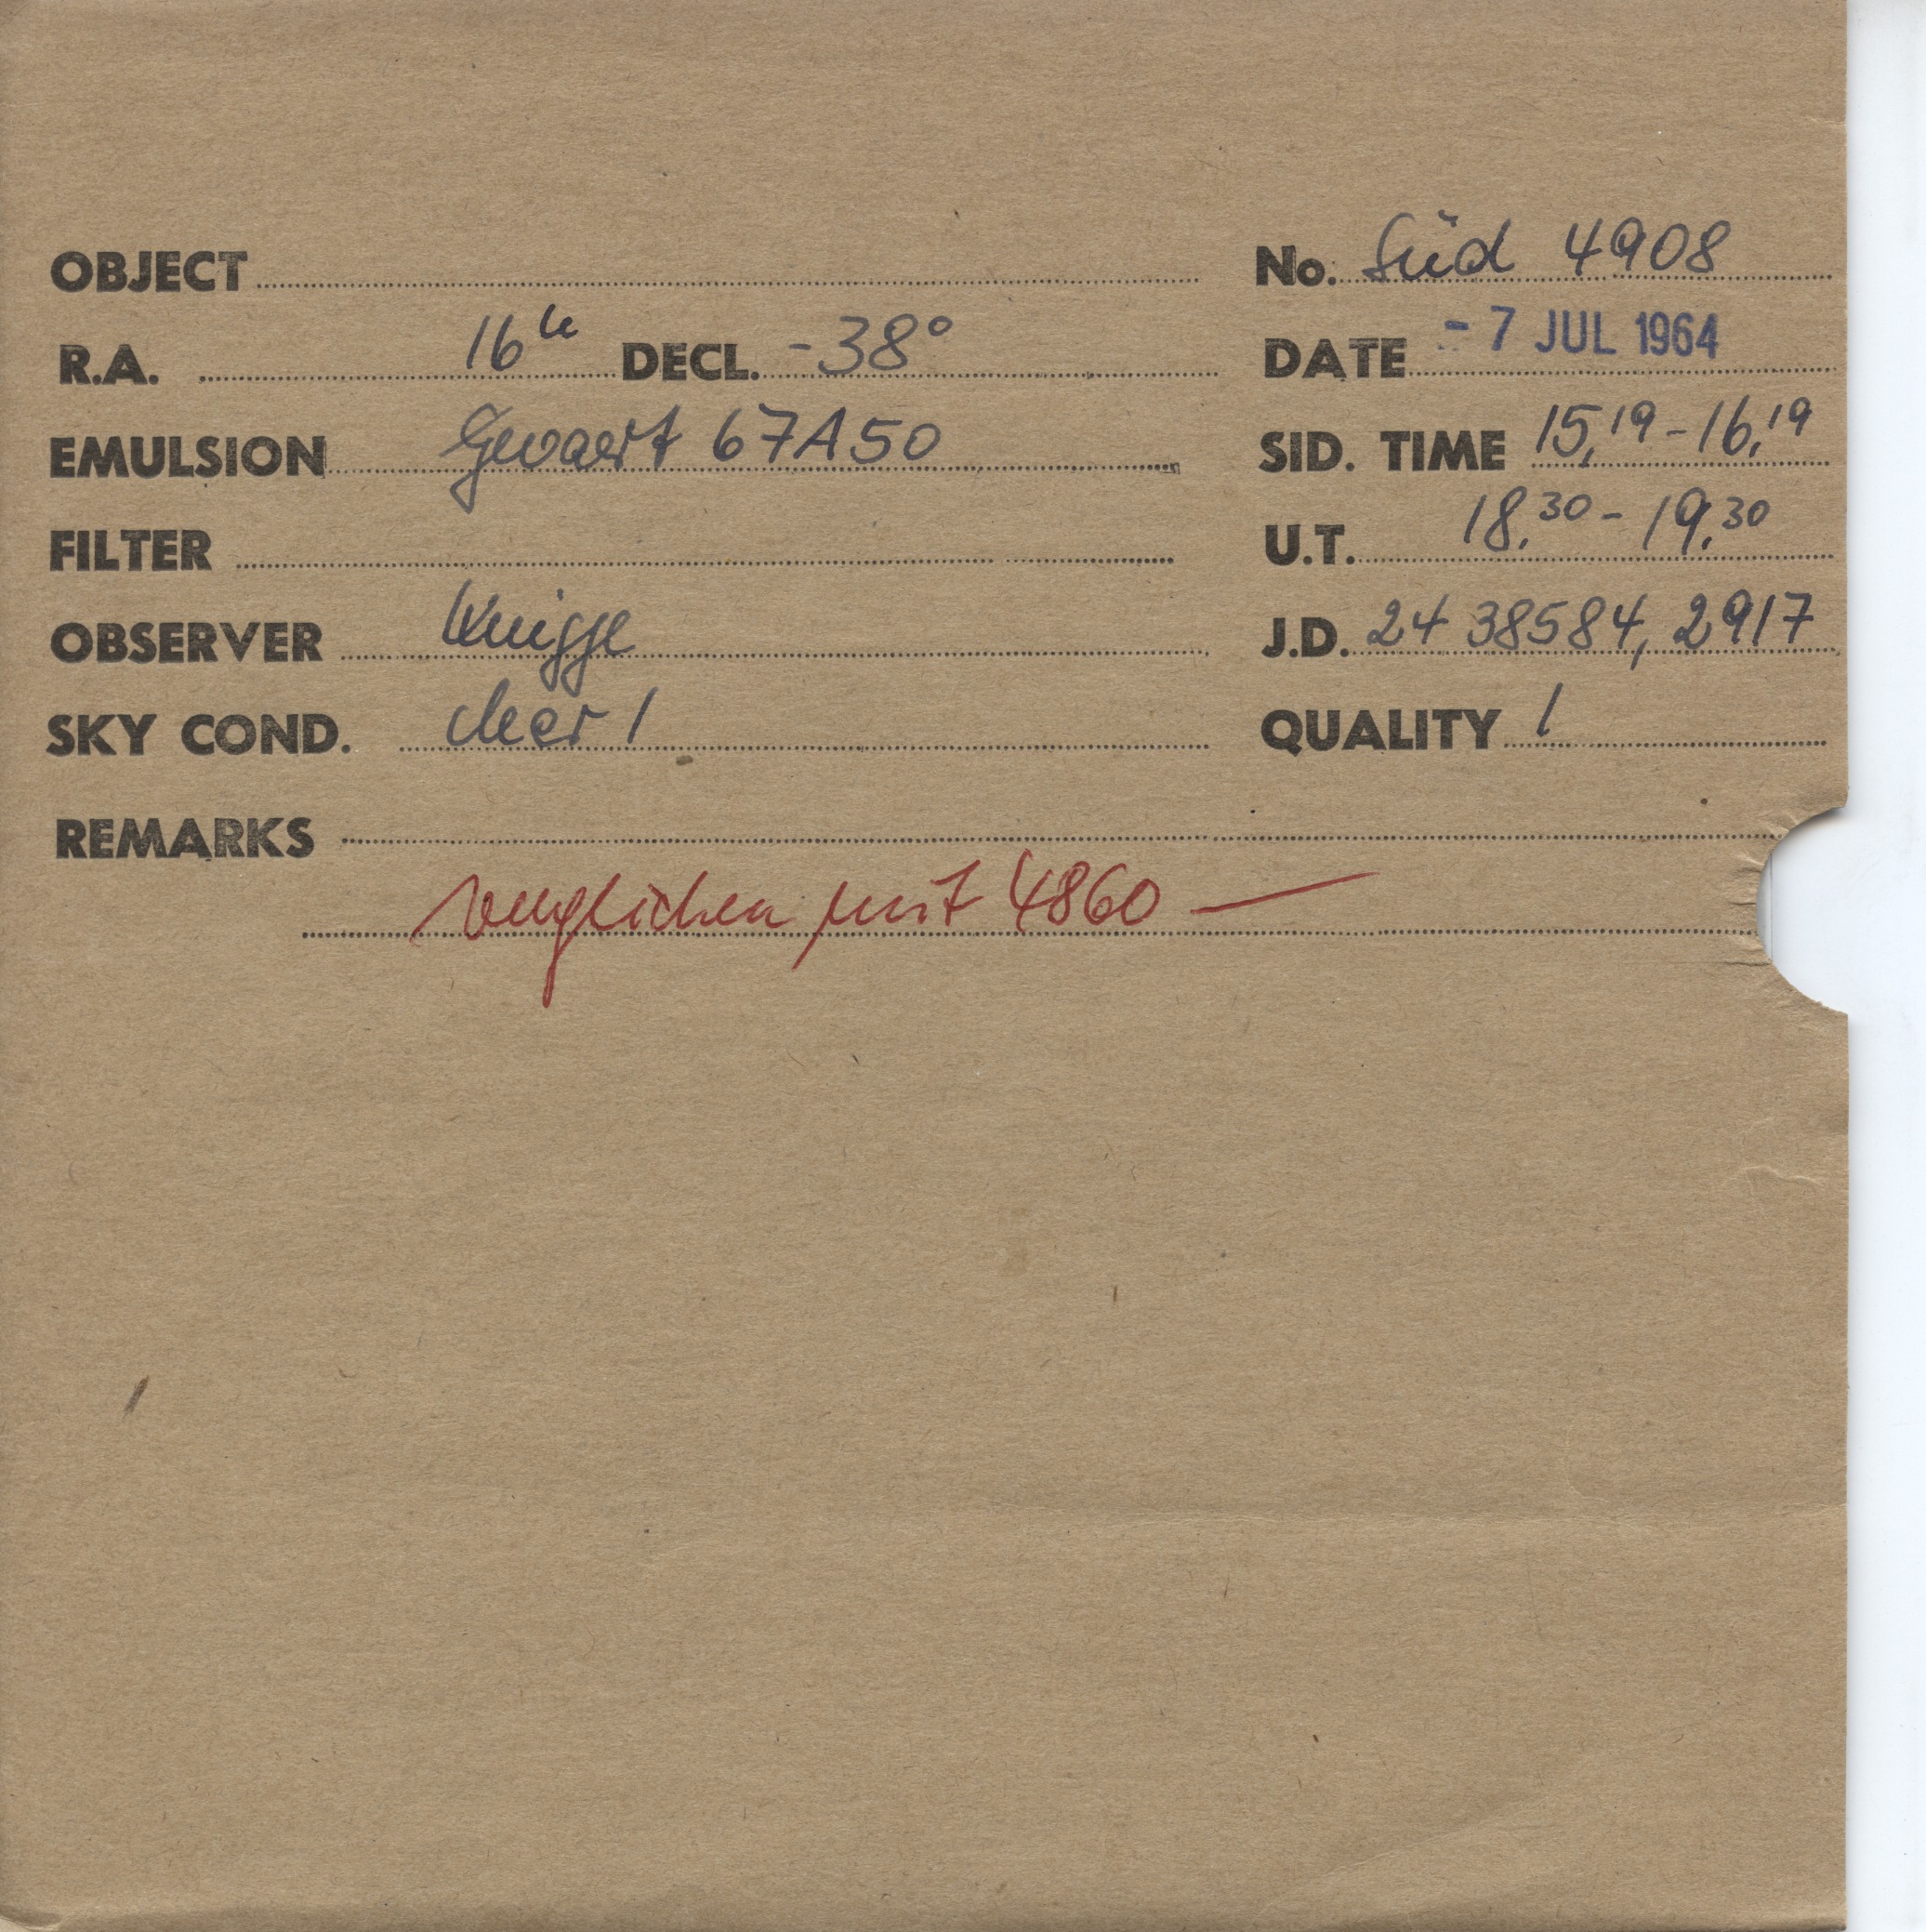 OBJECT No. Süd 4908
R.A. 16h DECL. -38° DATE - 7 JUL 1964
EMULSION Gevaert 67A50 SID. TIME 15,19 - 16,19
FILTER U.T. 18,30 - 19,30
OBSERVER Knigge J.D. 24 38584, 2917
SKY COND. clear 1 QUALITY 1
REMARKS
verglichen mit 4860 —